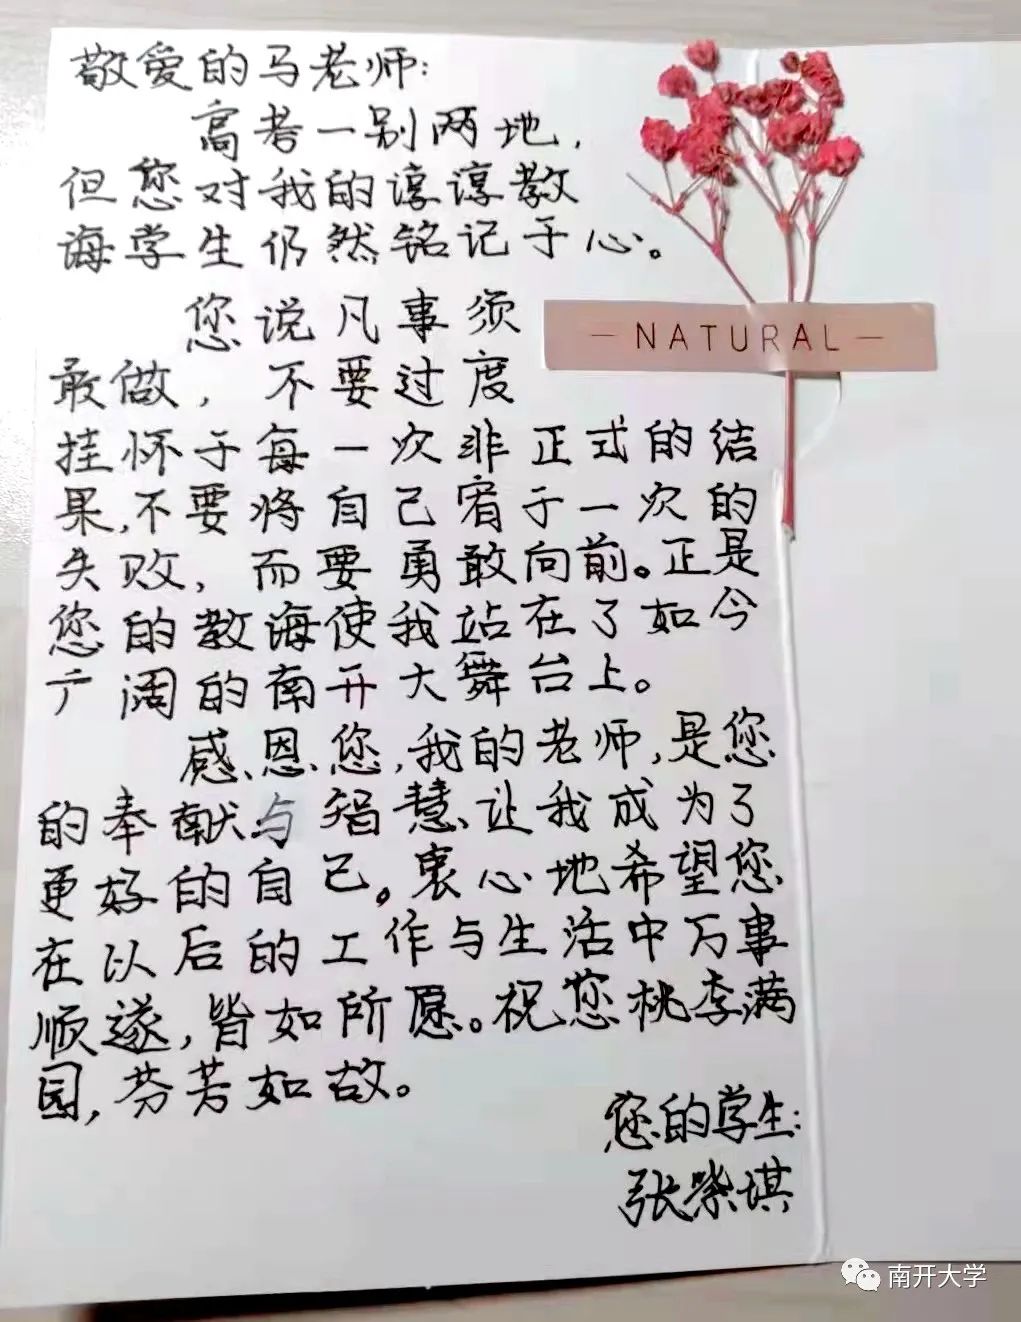 敬爱的马老师:
高考一别两地,
但您对我的谆谆教
诲学生仍然铭记于心。
— NATURAL —
您说凡事须
敢做, 不要过度
挂怀于每一次非正式的结
果,不要将自己宥于一次的
失败, 而要勇敢向前。正是
您的教诲使我站在了如今
广阔的南开大舞台上。
感恩您,我的老师,是您
的奉献与智慧让我成为了
更好的自己。衷心地希望您
在以后的工作与生活中万事
顺遂,皆如所愿。祝您桃李满
园,芬芳如故。
您的学生:
张紫琪
南开大学